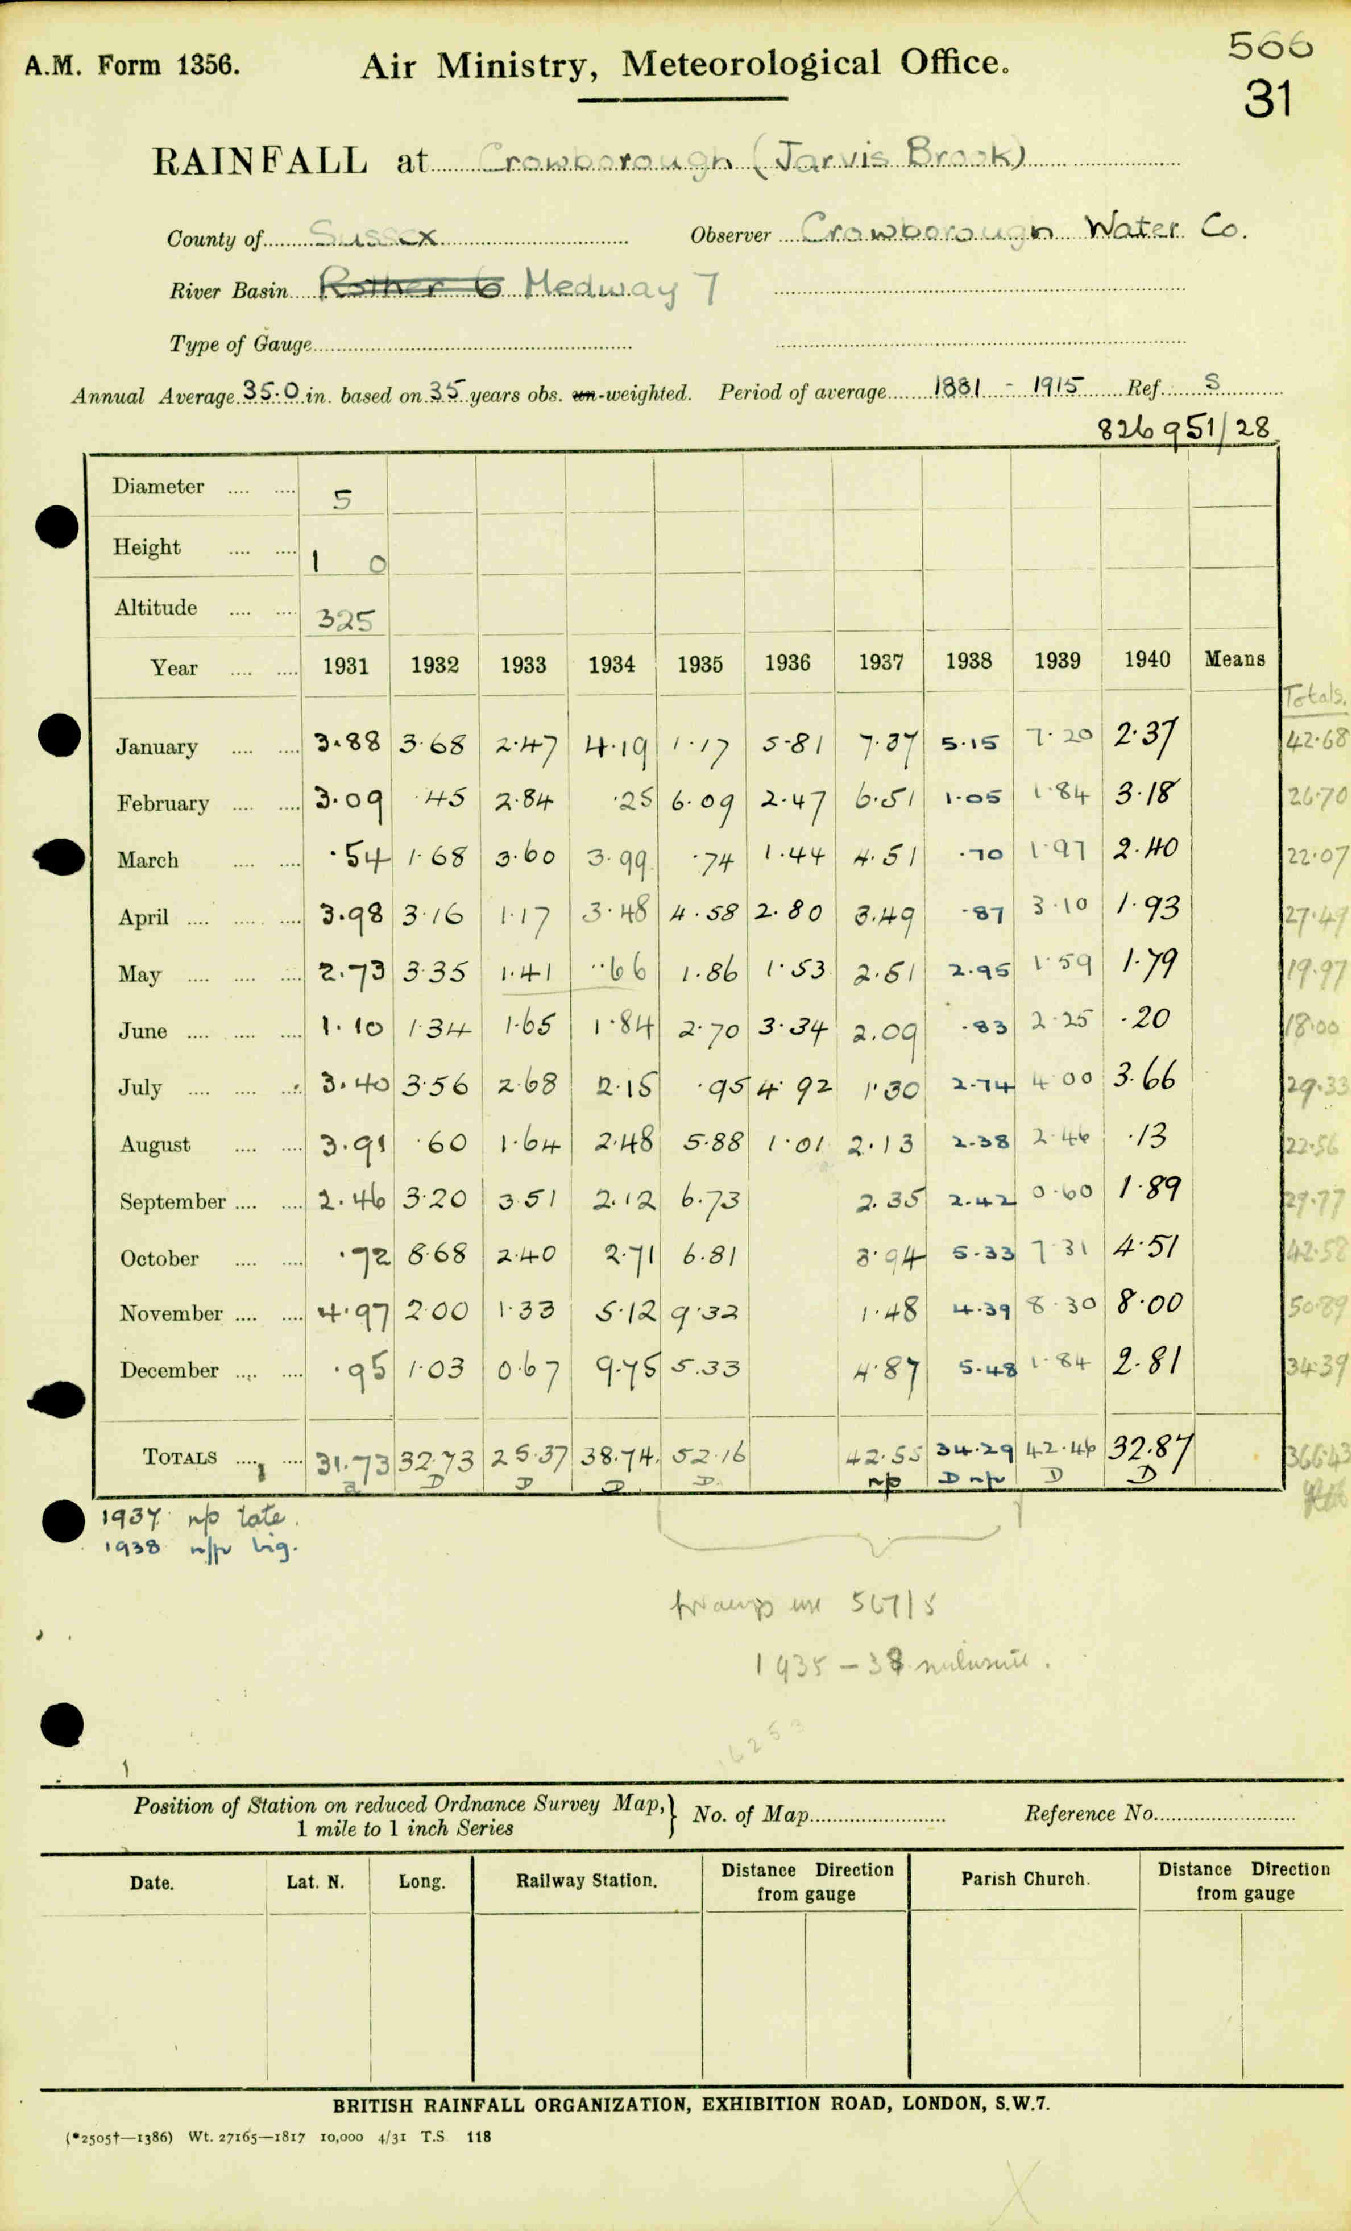 A.M. Form 1356.
Air Ministry, Meteorological Office.
566
31
RAINFALL at Crowborough (Jarvis Brook)
County of Sussex Observer Crowborough Water Co.
River Basin Rother 6 Medway 7
Type of Gauge
Annual Average 35.0 in. based on 35 years obs. un-weighted. Period of average 1881 - 1915 Ref. S
826951/28
Diameter 5
Height 1 0
Altitude 325
Year 1931 1932 1933 1934 1935 1936 1937 1938 1939 1940 Means Totals.
January 3.88 3.68 2.47 4.19 1.17 5.81 7.37 5.15 7.20 2.37 42.68
February 3.09 .45 2.84 .25 6.09 2.47 6.51 1.05 1.84 3.18 26.70
March .54 1.68 3.60 3.99 .74 1.44 4.51 .70 1.97 2.40 22.07
April 3.98 3.16 1.17 3.48 4.58 2.80 3.49 .87 3.10 1.93 27.49
May 2.73 3.35 1.41 .66 1.86 1.53 2.51 2.95 1.59 1.79 19.97
June 1.10 1.34 1.65 1.84 2.70 3.34 2.09 .83 2.25 .20 18.00
July 3.40 3.56 2.68 2.15 .95 4.92 1.30 2.74 4.00 3.66 29.33
August 3.91 .60 1.64 2.48 5.88 1.01 2.13 2.38 2.46 .13 22.56
September 2.46 3.20 3.51 2.12 6.73 2.35 2.42 0.60 1.89 29.77
October .72 8.68 2.40 2.71 6.81 3.94 5.33 7.31 4.51 42.58
November 4.97 2.00 1.33 5.12 9.32 1.48 4.39 8.30 8.00 50.89
December .95 1.03 0.67 9.75 5.33 4.87 5.48 1.84 2.81 34.39
TOTALS 31.73 32.73 25.37 38.74 52.16 42.55 34.29 42.46 32.87 366.43
a D D D D n/p D n/p D D
1937 n/p late.
1938 n/p big.
567/5
1935 - 38 inclusive.
6253
Position of Station on reduced Ordnance Survey Map, 1 mile to 1 inch Series } No. of Map Reference No.
Date. Lat. N. Long. Railway Station. Distance Direction from gauge Parish Church. Distance Direction from gauge
BRITISH RAINFALL ORGANIZATION, EXHIBITION ROAD, LONDON, S.W.7.
(*2505†—1386) Wt. 27165—1817 10,000 4/31 T.S 118